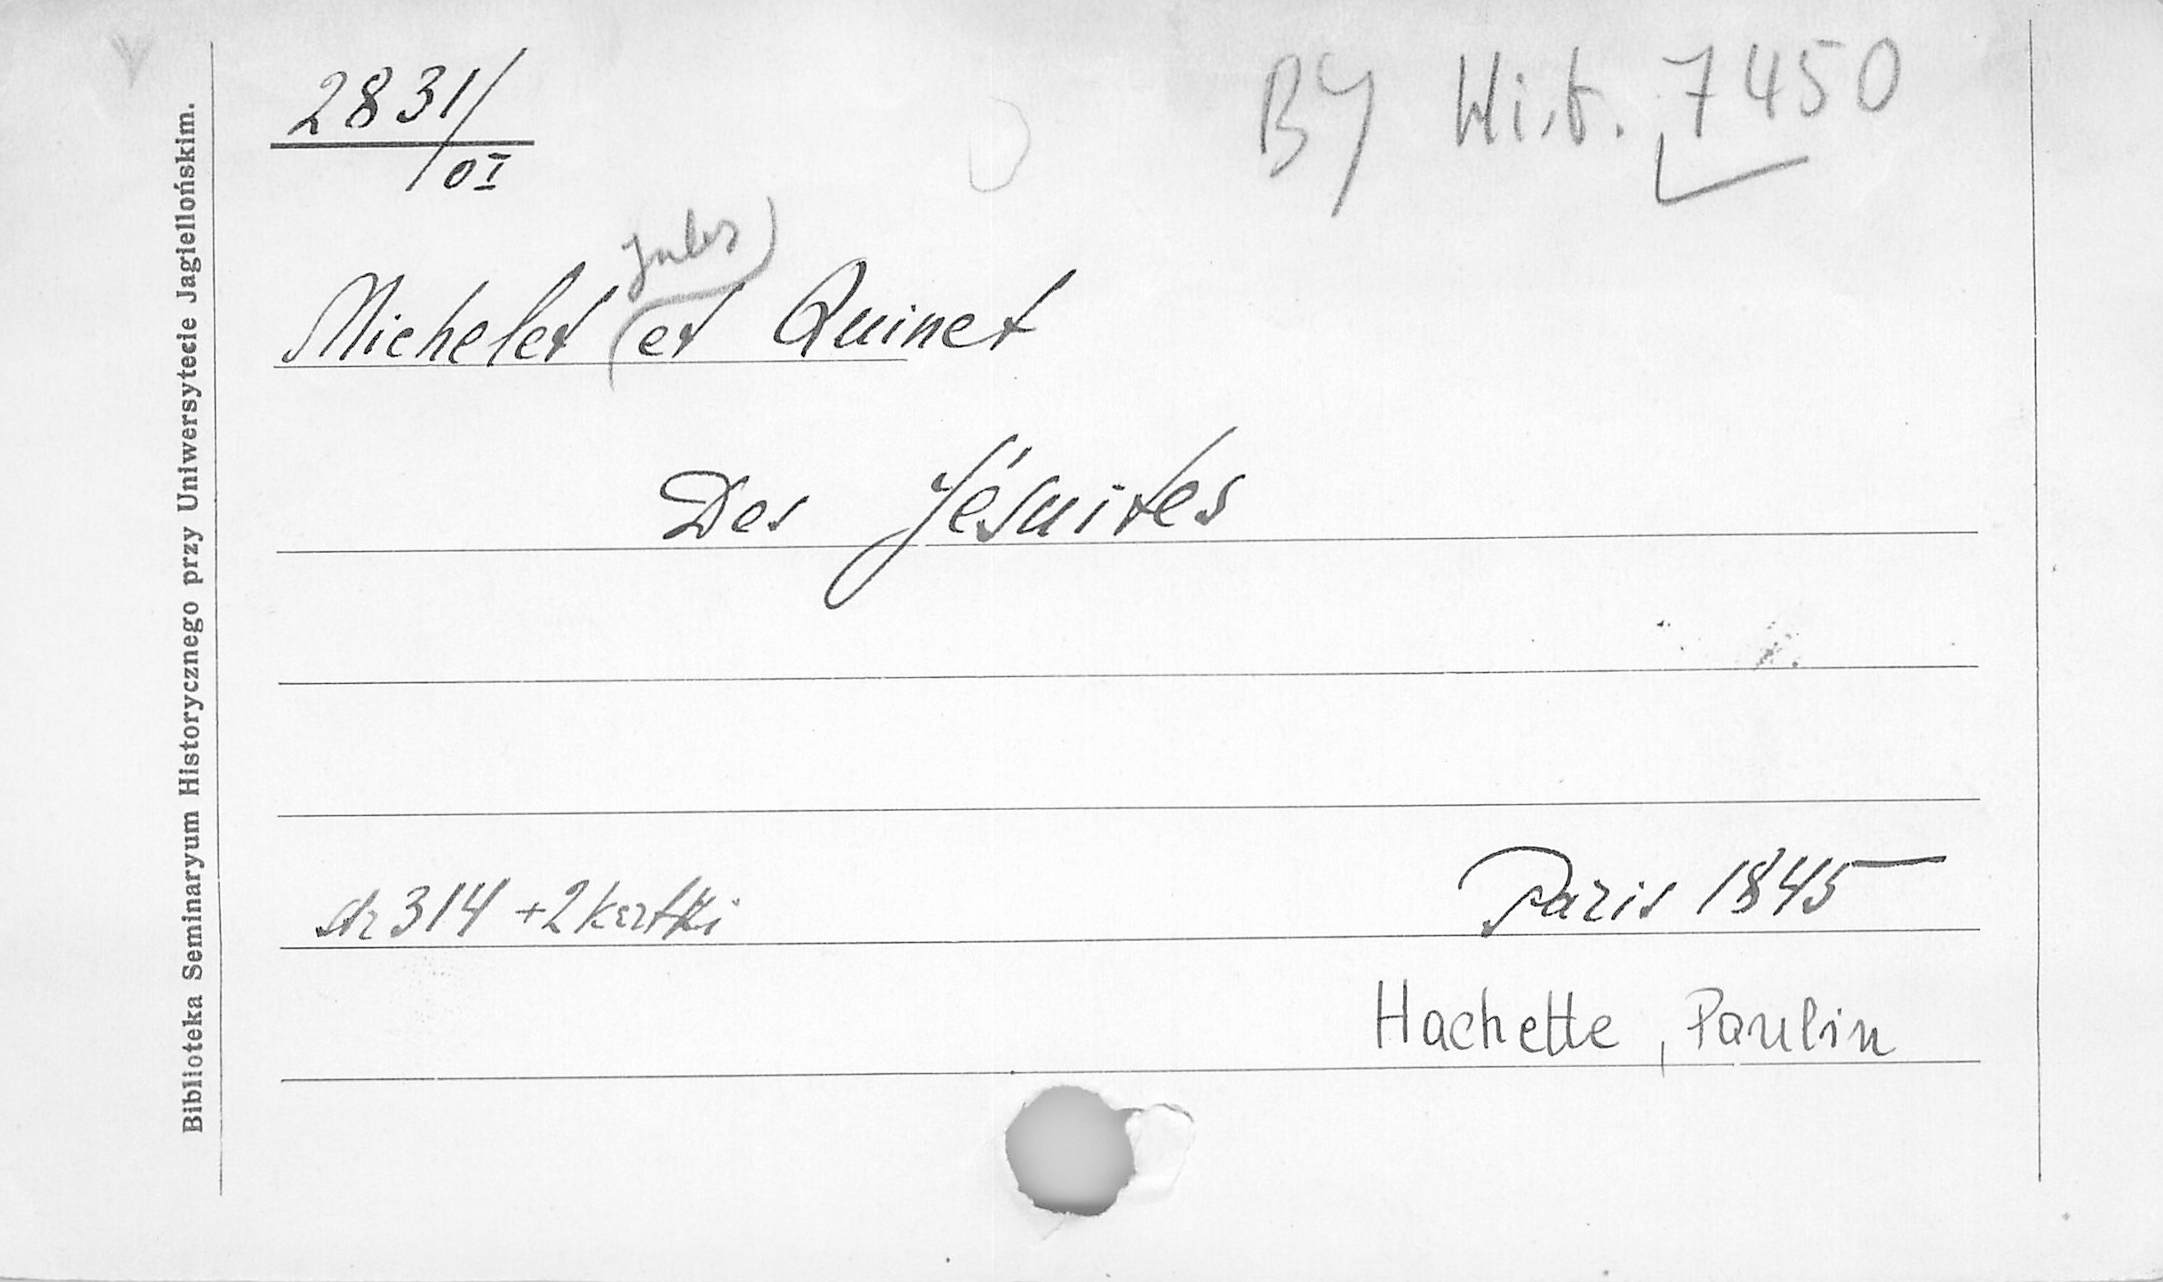 2831/OI
BJ Hist. 7450
Jules
Michelet et Quinet
Des Jésuites
str 314 + 2 kartki
Paris 1845
Hachette, Paulin
Biblioteka Seminaryum Historycznego przy Uniwersytecie Jagiellońskim.